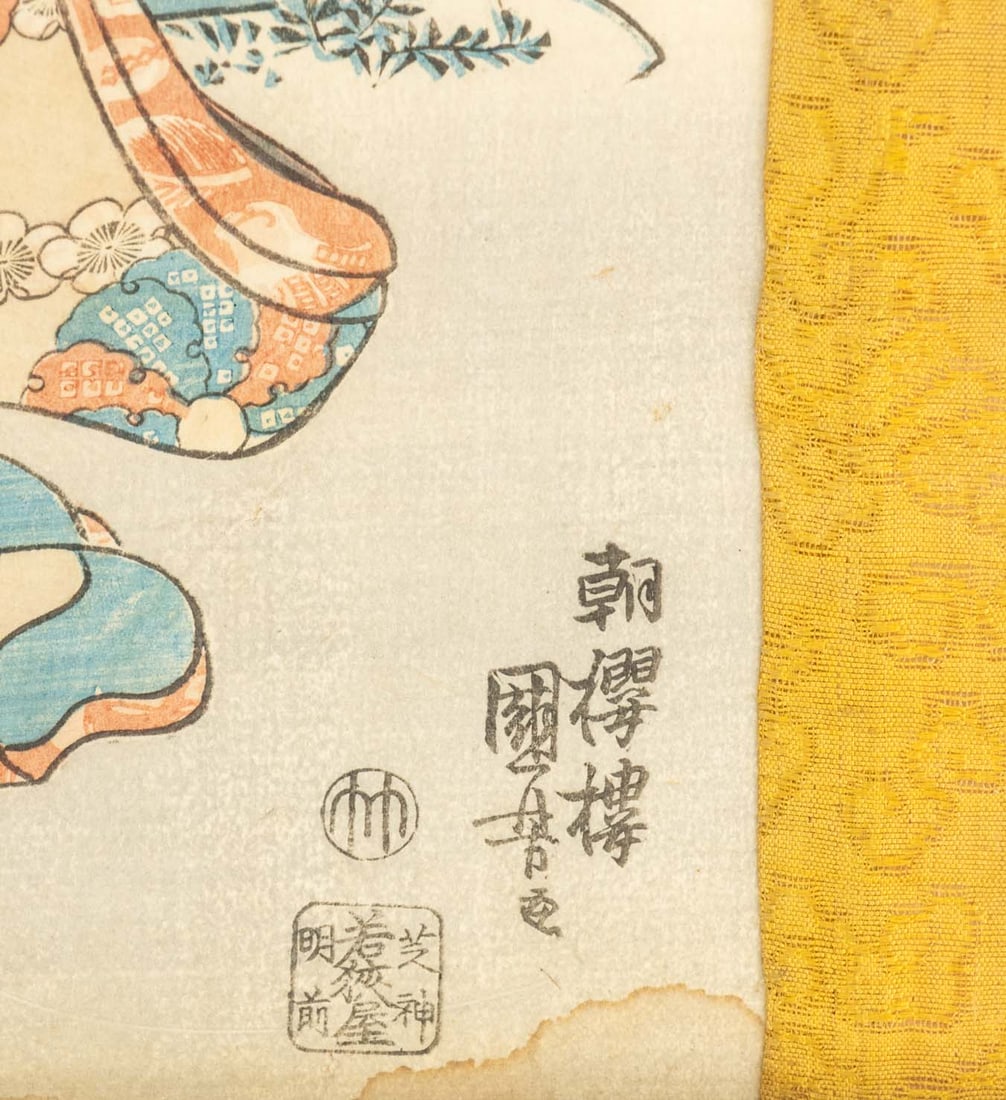 朝櫻樓
國芳画
竹
芝神
若狹屋
明前